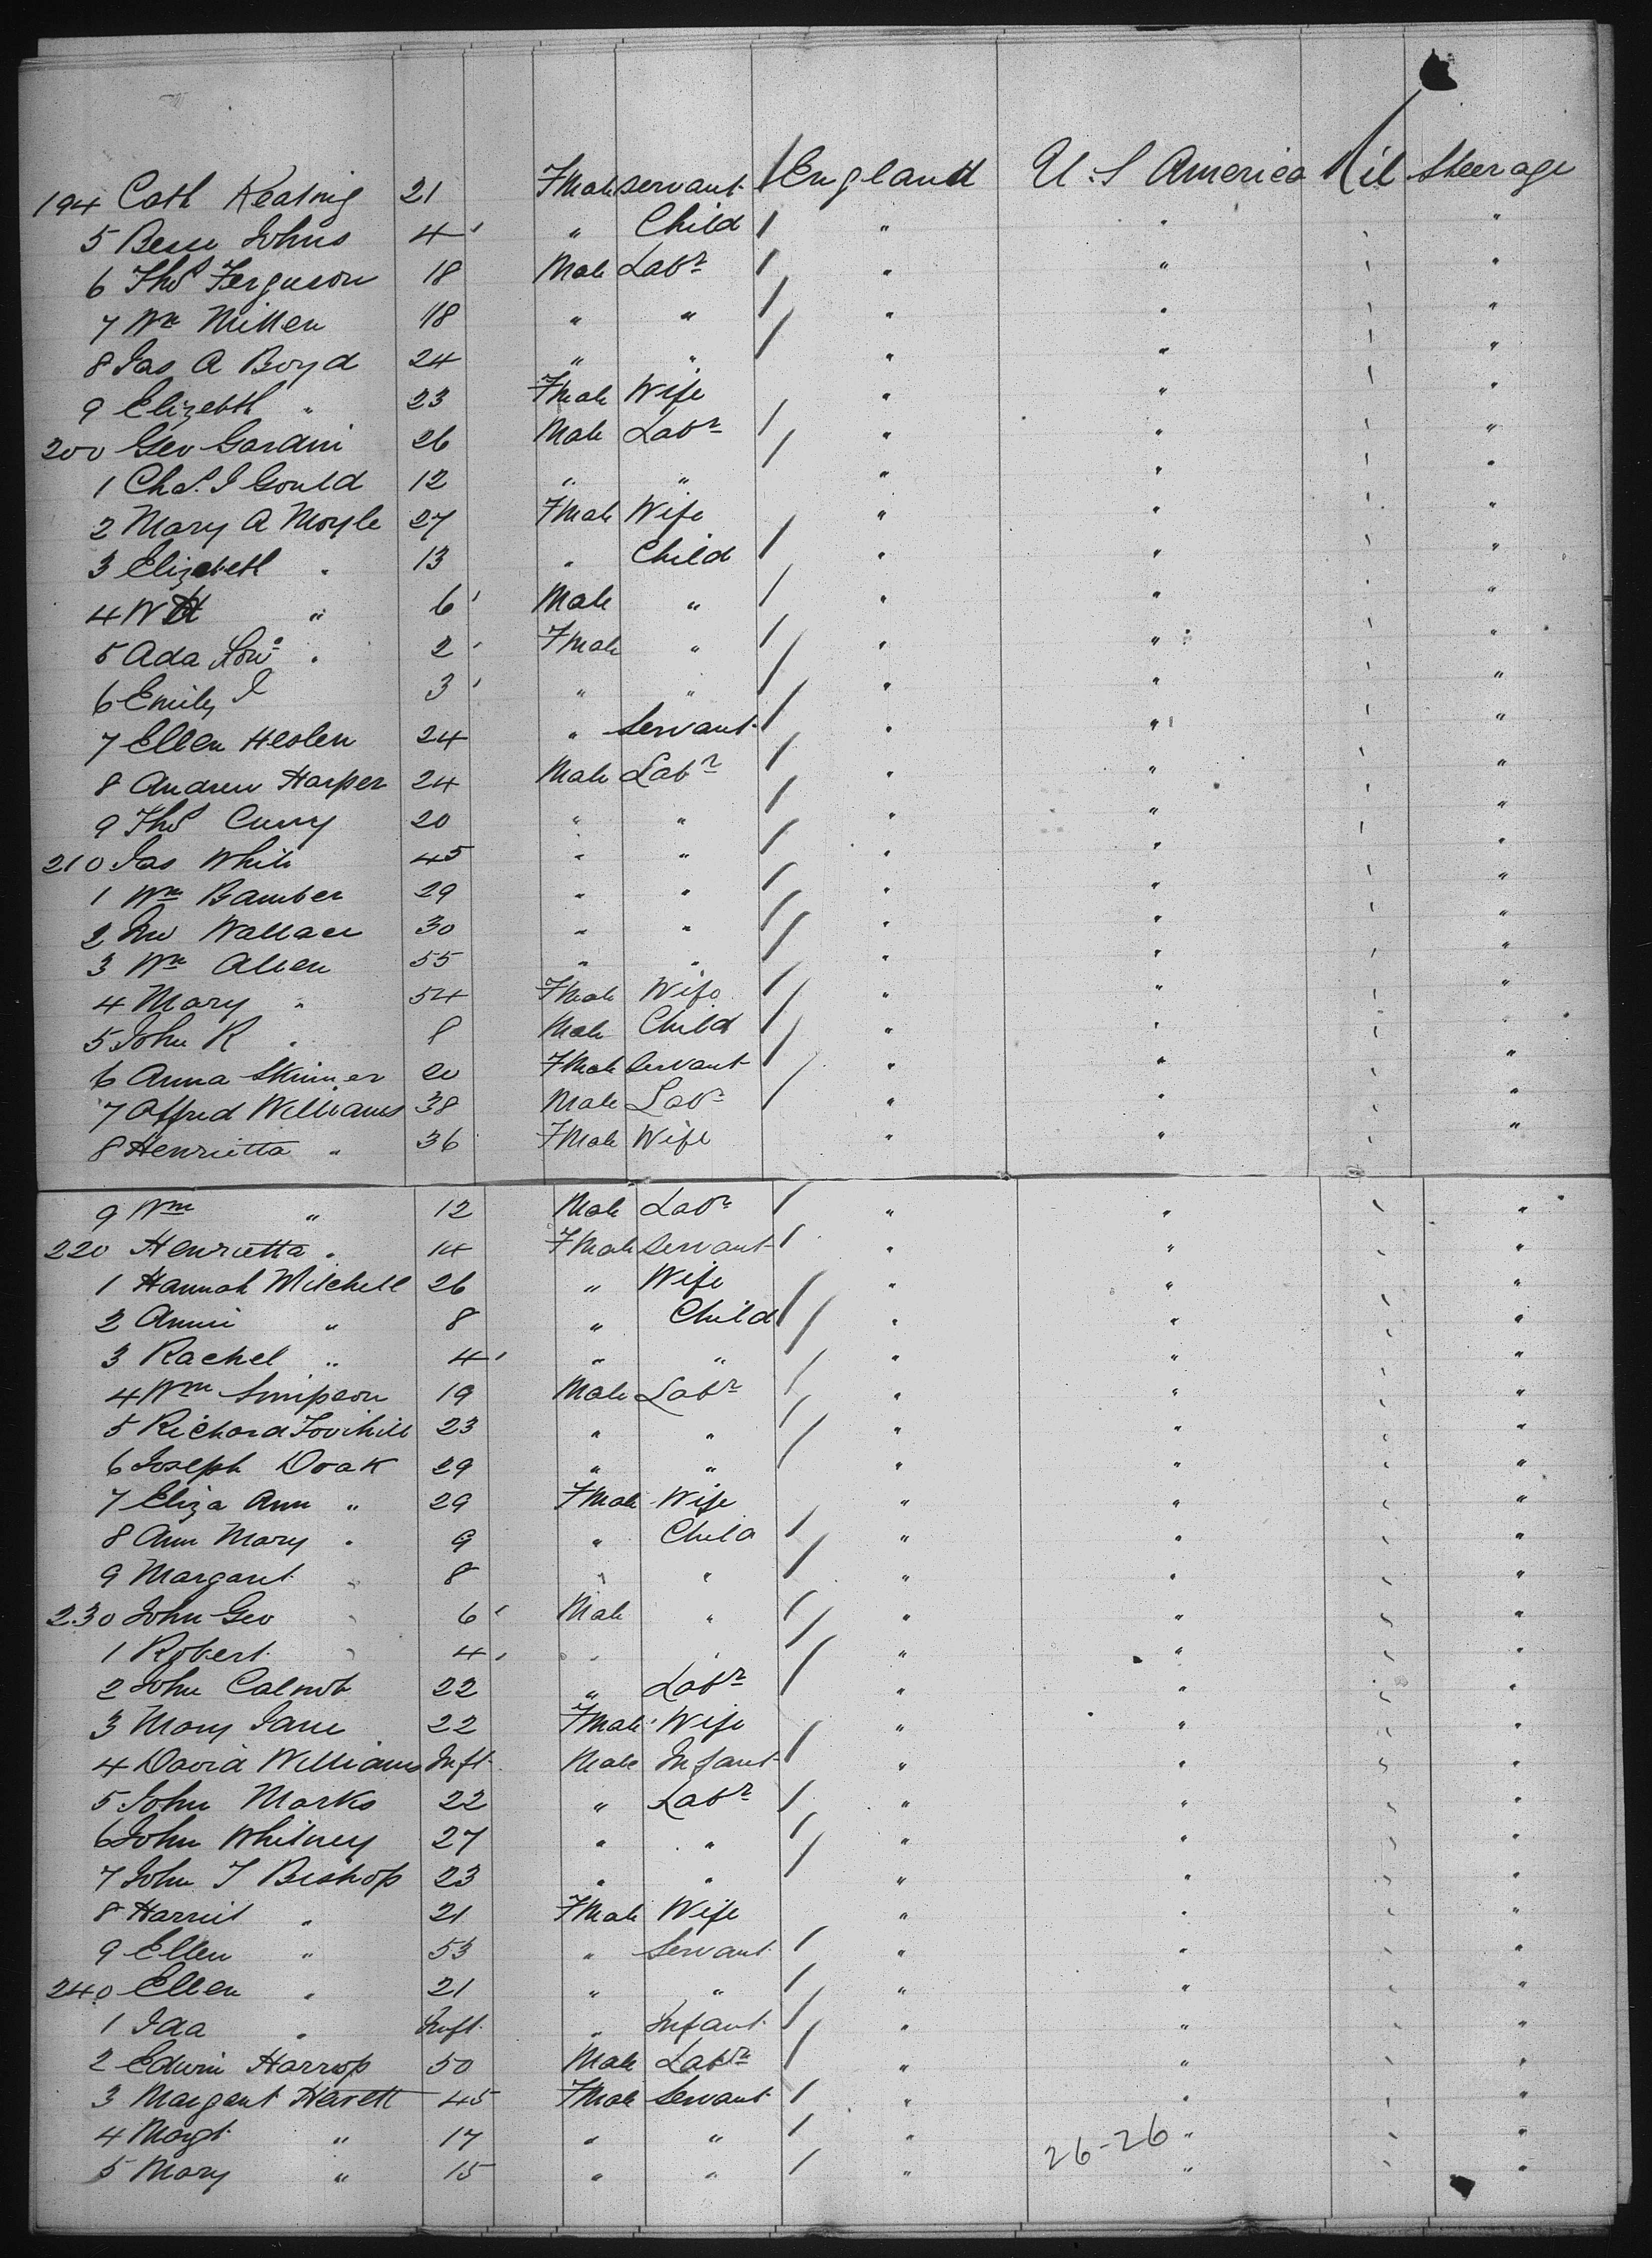 194 Cath Keating 21 Fmale servant England U.S America Nil Steerage
5 Besse Johns 4 " Child " " " "
6 Thos Ferguson 18 Male Labr " " " "
7 Wm Millen 18 " " " " " "
8 Jas A Boyd 24 " " " " " "
9 Elizebth " 23 Fmale Wife " " " "
200 Geo 26 Male Labr " " " "
1 Chs. J Gould 12 " " " " " "
2 Mary A Moyle 27 Fmale Wife " " " "
3 Elizabeth " 13 " Child " " " "
4 W H " 6 Male " " " " "
5 Ada " 2 Fmale " " " " "
6 Emily J 3 " " " " " "
7 Ellen Heslen 24 " Servant " " " "
8 Andrew Harper 24 Male Labr " " " "
9 Thos Curry 20 " " " " " "
210 Jas White 45 " " " " " "
1 Wm Bamber 29 " " " " " "
2 Jno Wallace 30 " " " " " "
3 Wm Allen 55 " " " " " "
4 Mary " 54 Fmale Wife " " " "
5 John R " 8 Male Child " " " "
6 Anna Skinner 20 Fmale Servant " " " "
7 Alfred Williams 38 Male Labr " " " "
8 Henrietta " 36 Fmale Wife " " " "
9 Wm " 12 Male Labr " " " "
220 Henrietta " 14 Fmale Servant " " " "
1 Hannah Mitchell 26 " Wife " " " "
2 Annie " 8 " Child " " " "
3 Rachel " 4 " " " " " "
4 Wm Simpson 19 Male Labr " " " "
5 Richard 23 " " " " " "
6 Joseph Doak 29 " " " " " "
7 Eliza Ann " 29 Fmale Wife " " " "
8 Ann Mary " 9 " Child " " " "
9 Margaret " 8 " " " " " "
230 John Geo " 6 Male " " " " "
1 Robert " 4 " " " " " "
2 John 22 " Labr " " " "
3 Mary Jane 22 Fmale Wife " " " "
4 David Williams Inft Male Infant " " " "
5 John Marks 22 " Labr " " " "
6 John Whitney 27 " " " " " "
7 John T Bishop 23 " " " " " "
8 Harriet " 21 Fmale Wife " " " "
9 Ellen " 53 " Servant " " " "
240 Ellen " 21 " " " " " "
1 Ida " Inft " Infant " " " "
2 Edwin Harrop 50 Male Labr " " " "
3 Margaret 45 Fmale Servant " " " "
4 Margt " 17 " " " " " "
26-26
5 Mary " 15 " " " " " "